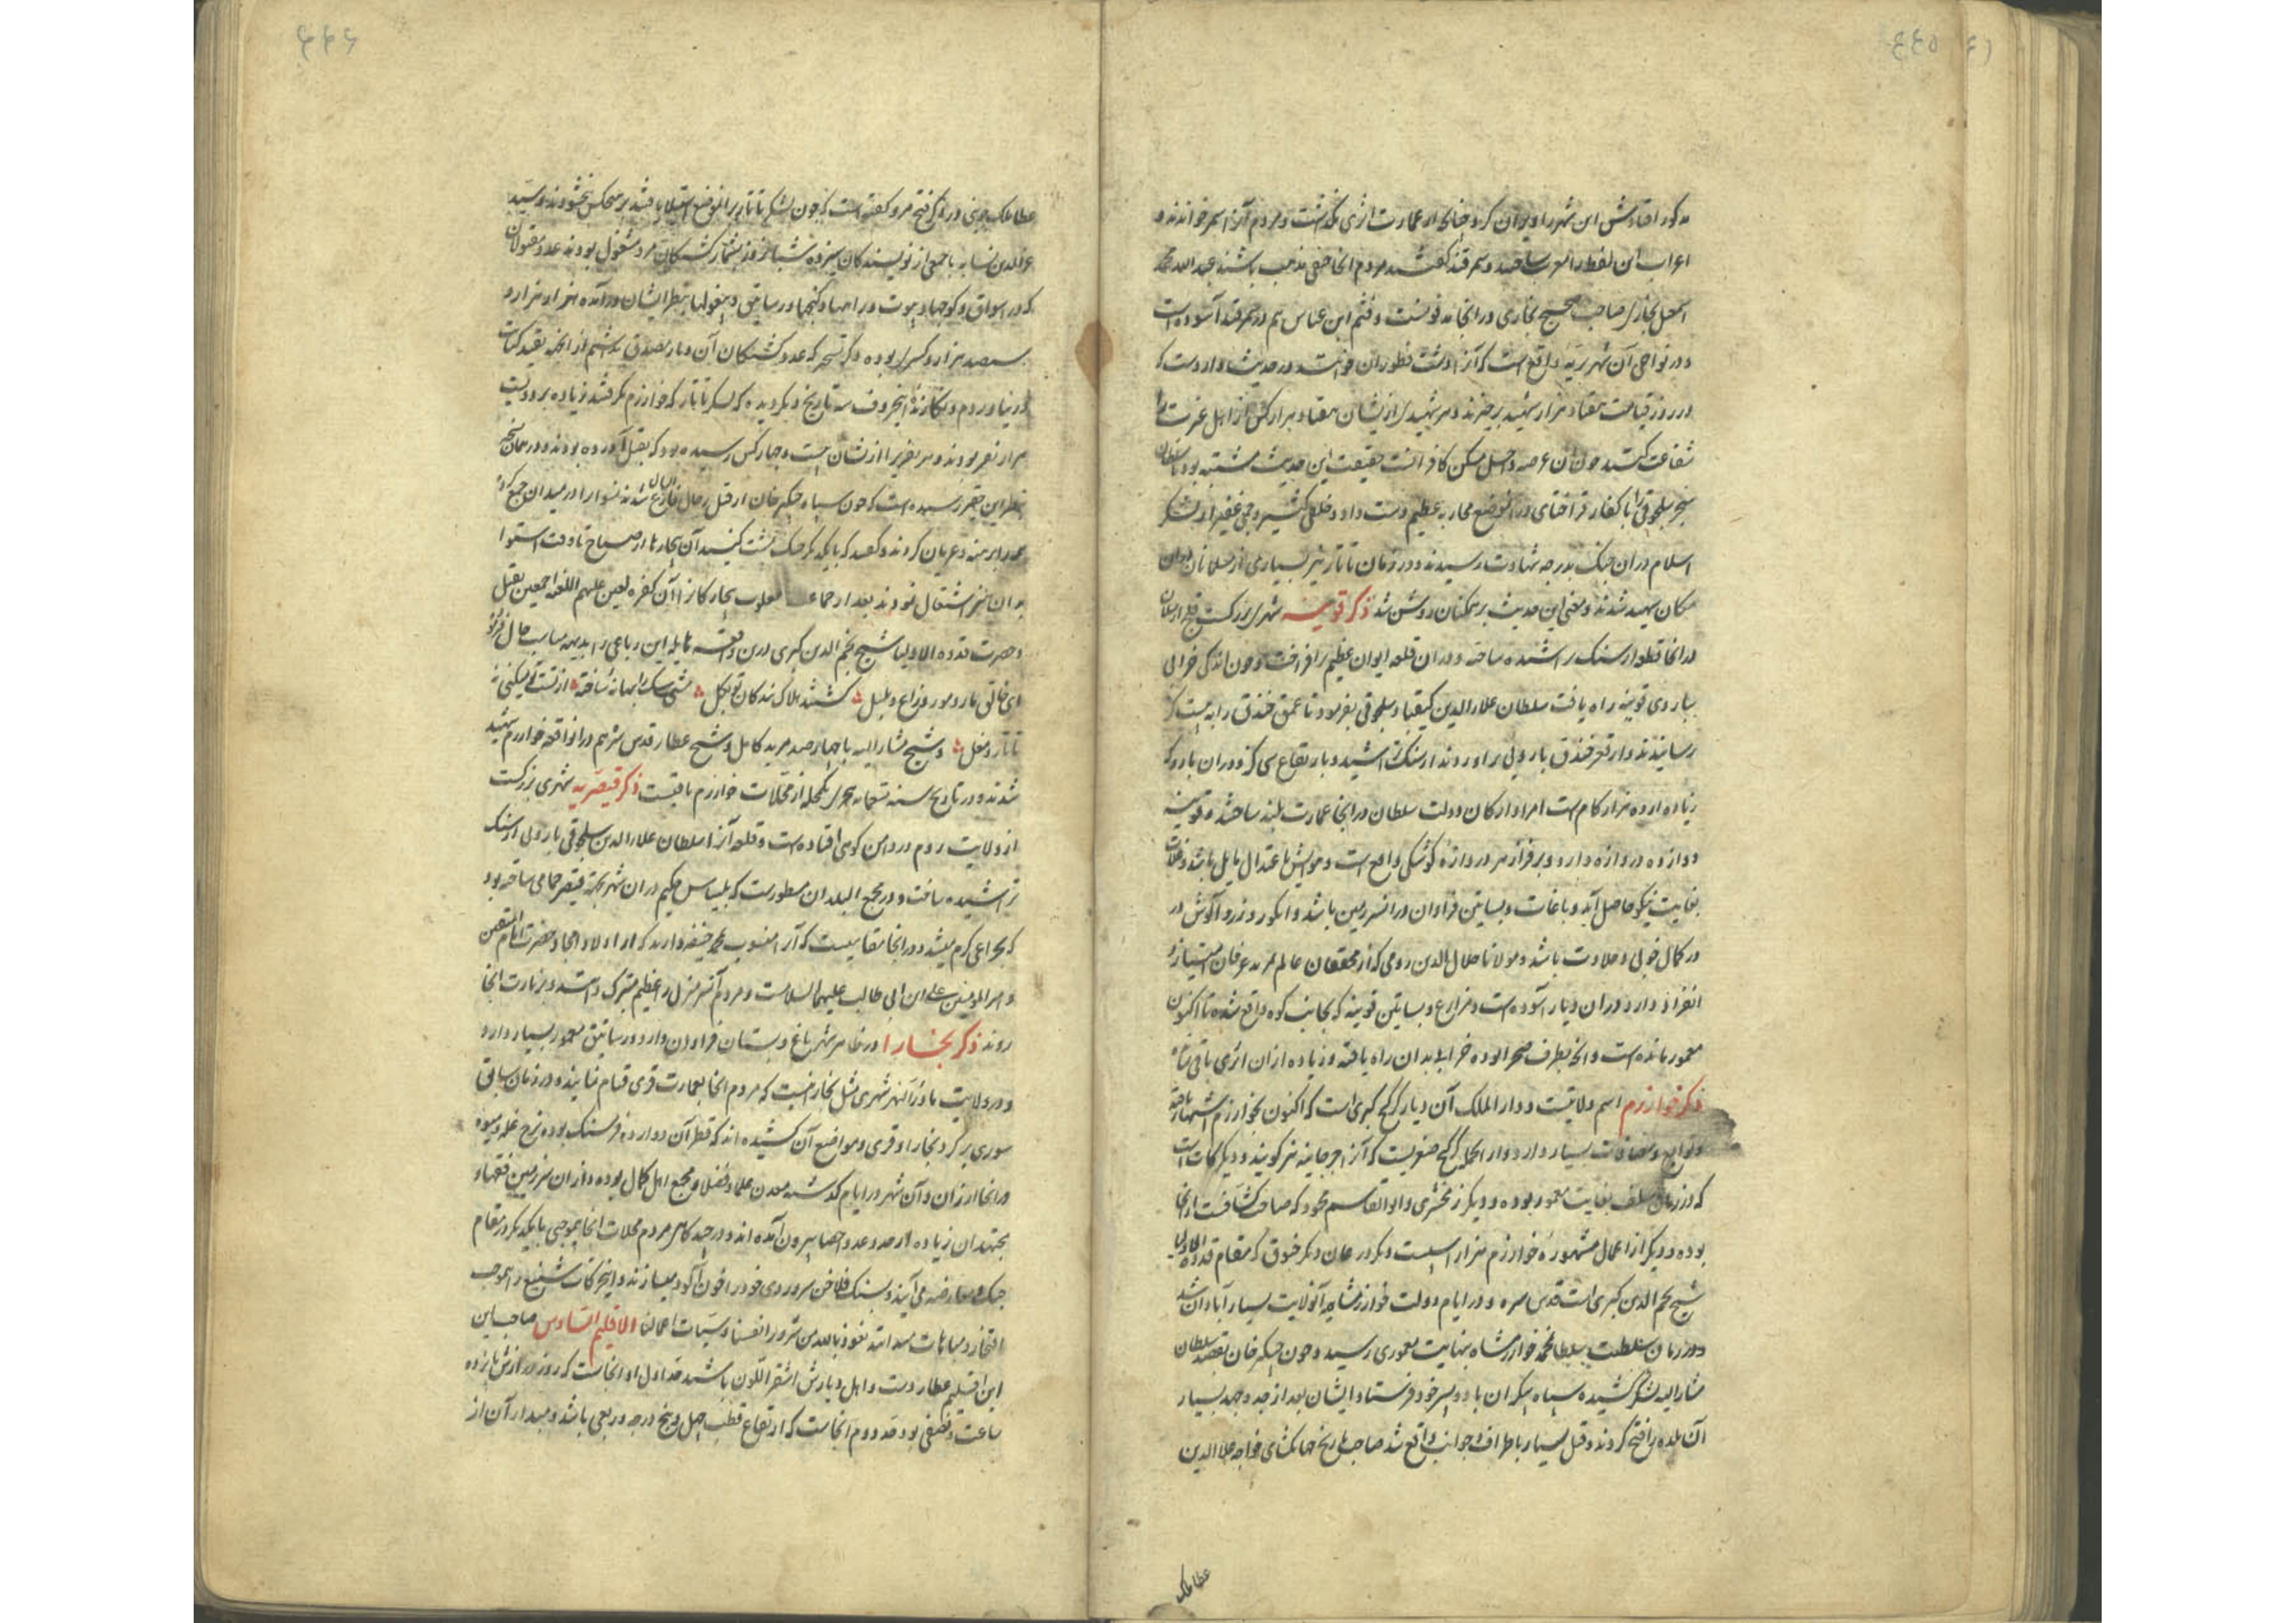 ۴۴۵
مذکور افتاد شمر این شهر را ویران کرد چنانچه از عمارت اثری نگذشت و مردم آنرا شمر خواندند و
اعراب این لفظ را معرب ساختند و سمرقند گفتند مردم آنجا حنفی مذهب باشند عبدالله محمد
اسمعیل بخاری صاحب صحیح بخاری در آنجا مدفونست و قثم ابن عباس هم در سمرقند آسوده است
و در نواحی آن شهر تربه واقع است که آنرا دشت قطوان خوانند در حدیث وارد است که
در روز قیامت هفتاد هزار شهید برخیزند و هر شهیدی از ایشان هفتاد هزار کس از اهل عزت را
شفاعت کنند چون آن عرصه داخل مسکن کافرانست حقیقت این حدیث مشتبه بود تا سلطان
سنجر سلجوقی را با کفار قراختای در آن موضع محاربه عظیم دست داد و خلقی کثیر و جمی غفیر از لشکر
اسلام در آن جنگ بدرجه شهادت رسیدند و در زمان تاتار نیز بسیاری از مسلمانان در آن
مکان شهید شدند و معنی این حدیث بر همکنان روشن شد ذکر قونیه شهری بزرگست قلج ارسلان
در آنجا قلعه از سنگ تراشیده ساخته و در آن قلعه ایوان عظیم برافراخت و چون اندکی خرابی
بباروی قونیه راه یافت سلطان علاءالدین کیقباد سلجوقی بفرمود تا عمق خندق را به بیست گز
رسانیدند و از قعر خندق بارویی برآوردند از سنگ تراشیده و بارتفاع سی گز و دوران بارو که
زیاده از ده هزار گام است امرا و ارکان دولت سلطان در آنجا عمارت بلند ساختند و قونیه
دوازده دروازه دارد و بر فراز هر دروازه کوشکی واقع است و هوایش باعتدال مایل باشد و غلات
بغایت نیکو حاصل آید و باغات و بساتین فراوان در آن سرزمین باشد و انگور و زردآلوش در
در کمال خوبی و حلاوت باشد و مولانا جلال الدین رومی که از محققان عالم بمزید عرفان امتیاز و
انفراد دارد در آن دیار آسوده است و مزارع و بساتین قونیه که بجانب کوه واقع شده تا اکنون
معمور مانده است و آنچه بطرف صحرا بوده خرابی بدان راه یافته و زیاده از آن اثری باقی نماند
ذکر خوارزم اسم ولایتست و دارالملک آن دیار گرگنج کبری است که اکنون بخوارزم اشتهار یافته
و توابع و مضافات بسیار دارد و از آنجمله گرگنج صغریست که آنرا جرجانیه نیز گویند و دیگر کات است
که در زمان سلف بغایت معمور بوده و دیگر زمخشری و ابوالقاسم محمود که صاحب کشافست از آنجا
بوده و دیگر از اعمال مشهوره خوارزم هزار اسبست و دیگر درغان و دیگر خیوق که مقام قدوة الاولیا
شیخ نجم الدین کبری است قدس سره و در ایام دولت خوارزمشاهیه آنولایت بسیار آبادان شد
و در زمان سلطنت سلطان محمد خوارزمشاه بنهایت معموری رسید و چون چنگیز خان بقصد سلطان
مشارالیه لشکر کشید سپاه بیکران با دو پسر خود فرستاد و ایشان بعد از جد و جهد بسیار
آن بلده را فتح کردند و قتل بسیار باطراف و جوانب واقع شد صاحب تاریخ جهانگشای خواجه علاءالدین
عطا ملک
۴۴۶
عطا ملک جوینی در ذکر فتح مرو گفته است که چون لشکر تاتار بر آن موضع استیلا یافتند بر هیچکس نبخشودند و سید
عزالدین نسابه با جمعی از نویسندگان سیزده شبانروز بشمار کشتگان مرو مشغول بودند عدد مقتولان
که در اسواق و کوچها و بیوت و راهها و کنجها و رساتیق و بیغولها بنظر ایشان درآمده هزار هزار و
سیصد هزار و کسری بوده و اگر نسبت که عدد کشتگان آن دیار بصدق باشیم از آنچه بقید کتابت
در نیاوردم و نگارنده این حروف سه تاریخ دیگر دیده که لشکر تاتار که خوارزم گرفتند زیاده بر دویست
هزار نفر بودند و هر نفری را از ایشان بیست و چهار کس رسیده بود که بقتل آورده بودند و در همان نسخه
بنظر این حقیر رسیده است که چون سپاه چنگیز خان از قتل رجال فارغ البال شدند نسوان را در میدان جمع کرده
همه را برهنه و عریان کردند و گفتند که با یکدیگر جنگ بمشت کنید آن بیچارها از صباح تا وقت استوا
بدان امر اشتغال نمودند بعد از آن جماعت مغلوب بیچارگان را آن کفره لعین علیهم اللعنه اجمعین بقتل
و حضرت قدوة الاولیا شیخ نجم الدین کبری درین واقعه هایله این رباعی را بدیهه مناسب حال فرمود
ای خالق مار و مور و زاغ و بلبل کشتند هلاک بندگان تو بکل مشتی سگ را بهانه ساخته از تست نمیکنی نه
تاتار و مغل و شیخ مشارالیه با چهار صد مرید کامل و شیخ عطار قدس سرهم در آن واقعه خوارزم شهید
شدند و در تاریخ سنه تسعمائه هجری یکمحله از محلات خوارزم باقیست ذکر قیصریه شهری بزرگست
از ولایت روم در دامن کوهی افتاده است و قلعه آنرا سلطان علاءالدین سلجوقی بارویی از سنگ
تراشیده ساخت و در مجمع البلدان مسطورست که بلیناس حکیم در آن شهر بجهة قیصر حمامی ساخته بود
که بچراغی گرم میشد و در آنجا مقامیست که آنرا منسوب بمحمد حنفیه دارند که از اولاد امجاد حضرت امام المتقین
و امیرالمومنین علی ابن ابی طالب علیهما السلامست و مردم آنسرمنزل را عظیم متبرک دانند و بزیارت آنجا
روند ذکر بخارا در ظاهر شهر باغ و بستان فراوان دارد و رساتیق معمور بسیار دارد
و در ولایت ماوراءالنهر شهری مثل بخارا نیست که مردم آنجا بعمارت قری قیام نمایند و در زمان سابق
سوری بر گرد بخارا و قری و مواضع آن کشیده اند که قطر آن دوازده فرسنگ بوده نرخ غله و میوه
در آنجا ارزان و آن شهر در ایام گذشته معدن علما و فضلا و مجمع اهل کمال بوده و از آن سرزمین فقها و
مجتهدان زیاده از حد و عدد احصا بیرون آمده اند و در عید گاهی مردم محلات آنجا بموجبی با یکدیگر در مقام
جنگ و معارضه می آیند و بسنگ فلاخن سر و روی خود را خون آلود میسازند و این حرکات شنیع را موجب
افتخار و مباهات میدانند نعوذ بالله من شرور انفسنا و سیئات اعمالنا الاقلیم السادس صاحب این
این اقلیم عطاردست و اهل دیارش اشقر اللون باشند حد اول او آنجاست که روز درازش پانزده
ساعت و نصفی بود حد دوم آنجاست که ارتفاع قطب چهل و پنج درجه و ربعی باشد و مبدا آن از